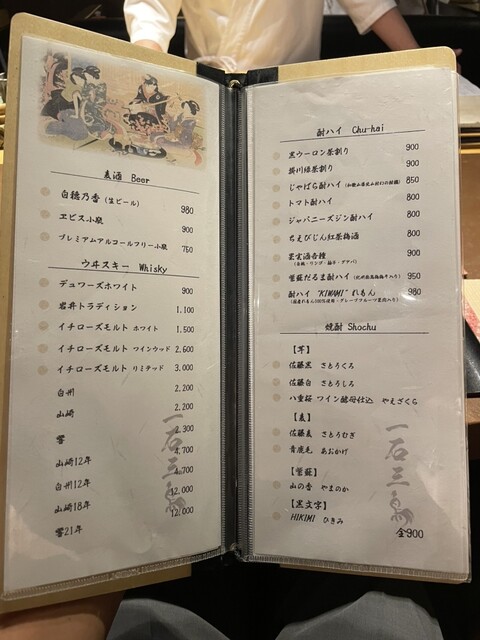 麦酒 Beer
白穂乃香 (生ビール) 980
ヱビス小瓶 900
プレミアムアルコールフリー小瓶 750
ウヰスキー Whisky
デュワーズホワイト 900
岩井トラディション 1,100
イチローズモルト ホワイト 1,500
イチローズモルト ワインウッド 2,600
イチローズモルト リミテッド 3,000
白州 2,200
山崎 2,200
響 2,300
山崎12年 4,700
白州12年 4,700
山崎18年 12,000
響21年 12,000
一石三鳥
酎ハイ Chu-hai
黒ウーロン茶割り 900
掛川緑茶割り 900
じゃばら酎ハイ 850
トマト酎ハイ 800
ジャパニーズジン酎ハイ 800
ちえびじん紅茶梅酒 800
果実酒各種 900
紫蘇だるま酎ハイ 950
酎ハイ "KIWAMI" れもん 980
焼酎 Shochu
【芋】
佐藤黒 さとうくろ
佐藤白 さとうしろ
八重桜 ワイン酵母仕込 やえざくら
【麦】
佐藤麦 さとうむぎ
青鹿毛 あおかげ
【紫蘇】
山の香 やまのか
【黒文字】
HIKIMI ひきみ
全900
一石三鳥